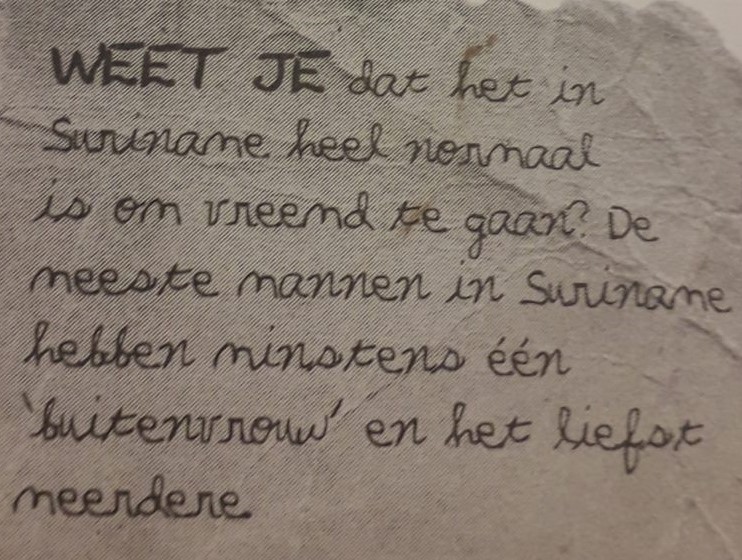 WEET JE dat het in
Suriname heel normaal
is om vreemd te gaan? De
meeste mannen in Suriname
hebben minstens één
'buitenvrouw' en het liefst
meerdere